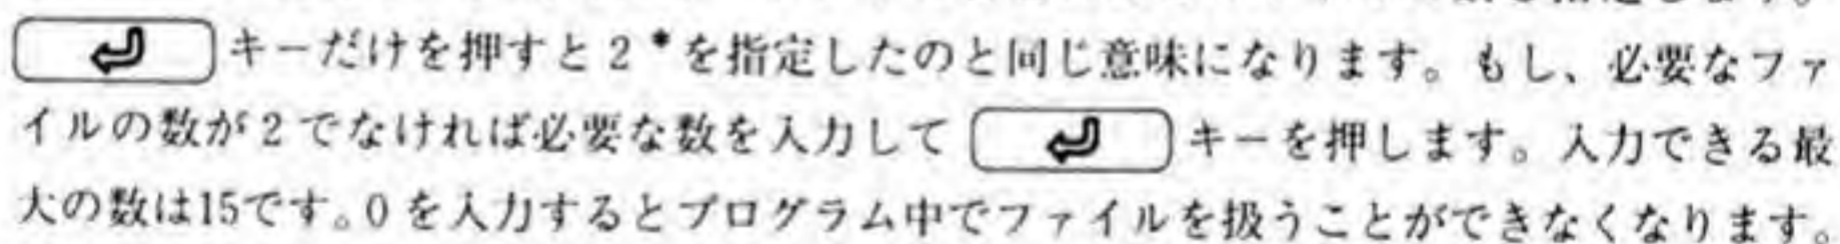 ⏎キーだけを押すと2*を指定したのと同じ意味になります。もし、必要なファ
イルの数が2でなければ必要な数を入力して⏎キーを押します。入力できる最
大の数は15です。0を入力するとプログラム中でファイルを扱うことができなくなります。